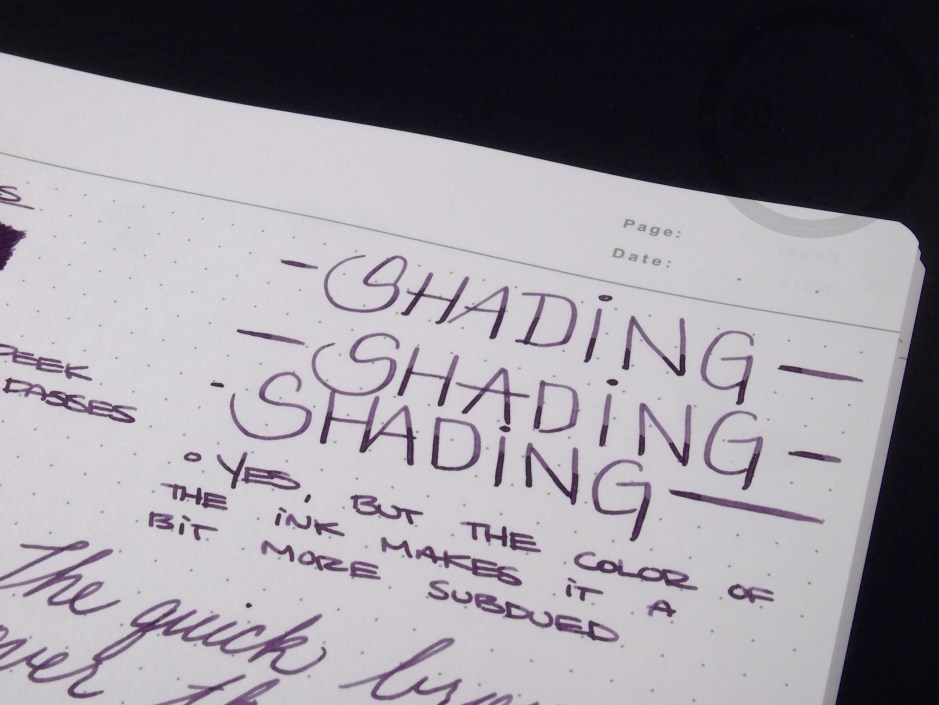 Page:
Date:
- SHADiNG -
- SHADiNG -
- SHADiNG -
PASSES
° YES, BUT THE COLOR OF
THE iNK MAKES iT A
BiT MORE SUBDUED
The quick